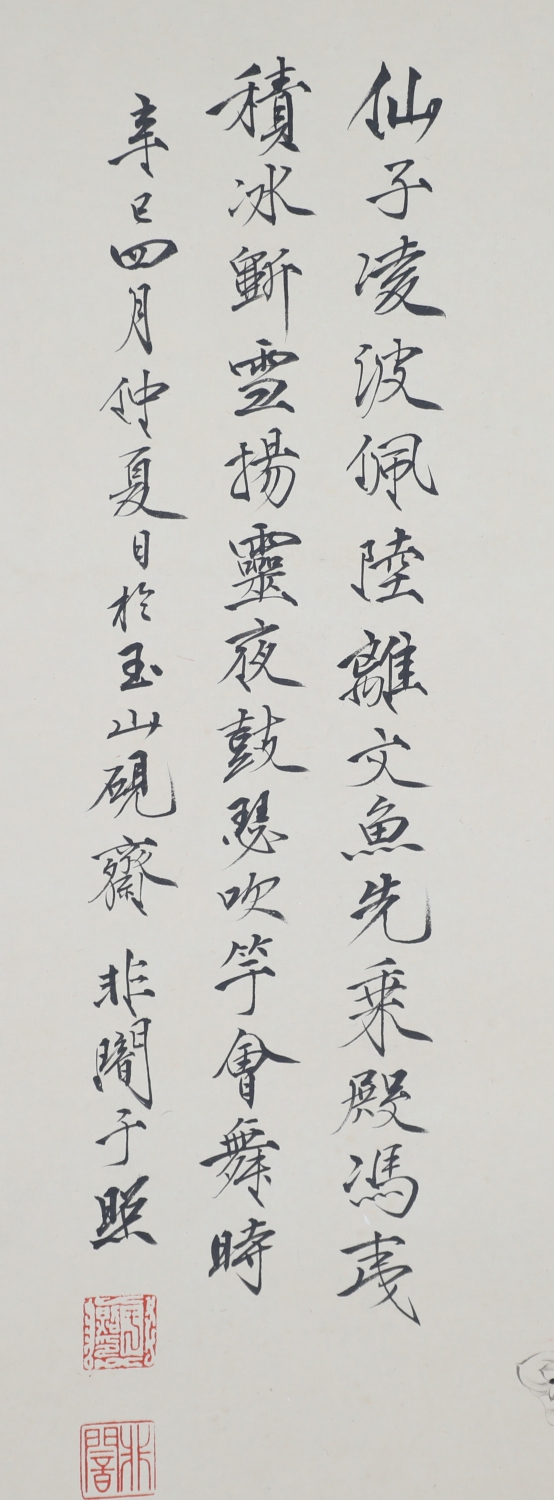 仙子凌波佩陸離文魚先乘殿馮夷
積冰斵雪揚靈夜鼓瑟吹竽會舞時
辛巳四月仲夏日於玉山硯齋 非闇于照
非闇